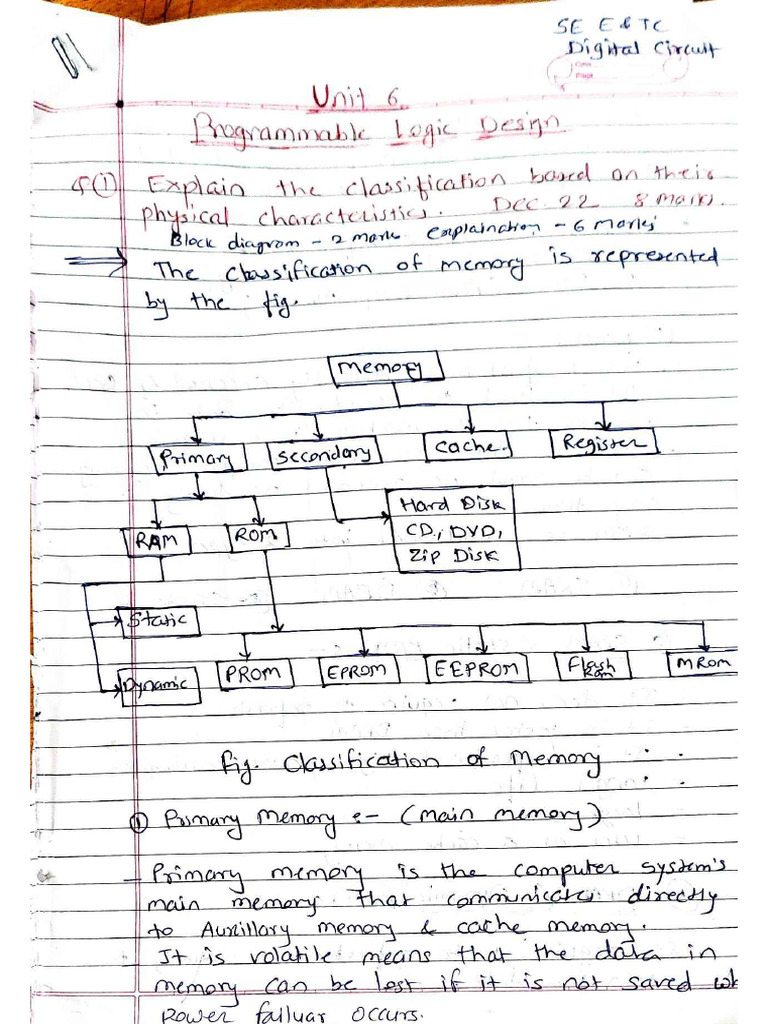 SE E & TC
Digital Circuit
Unit 6
Programmable Logic Design
Q① Explain the classification based on their
physical characteristics. Dec. 22 8 mark.
Block diagram - 2 mark explainction - 6 marks
The classification of memory is represented
by the fig.
Memory
Primary Secondary Cache. Register
RAM ROM
Hard Disk
CD., DVD,
Zip Disk
Static
Dynamic
PROM EPROM EEPROM Flash
Rom
MRom
Fig. Classification of Memory
① Primary Memory :- (Main memory)
- Primary memory is the computer system's
main memory that communicates directly
to Auxillary memory & cache memory.
It is volatile means that the data in
memory can be lost if it is not saved wh
power falluar occurs.